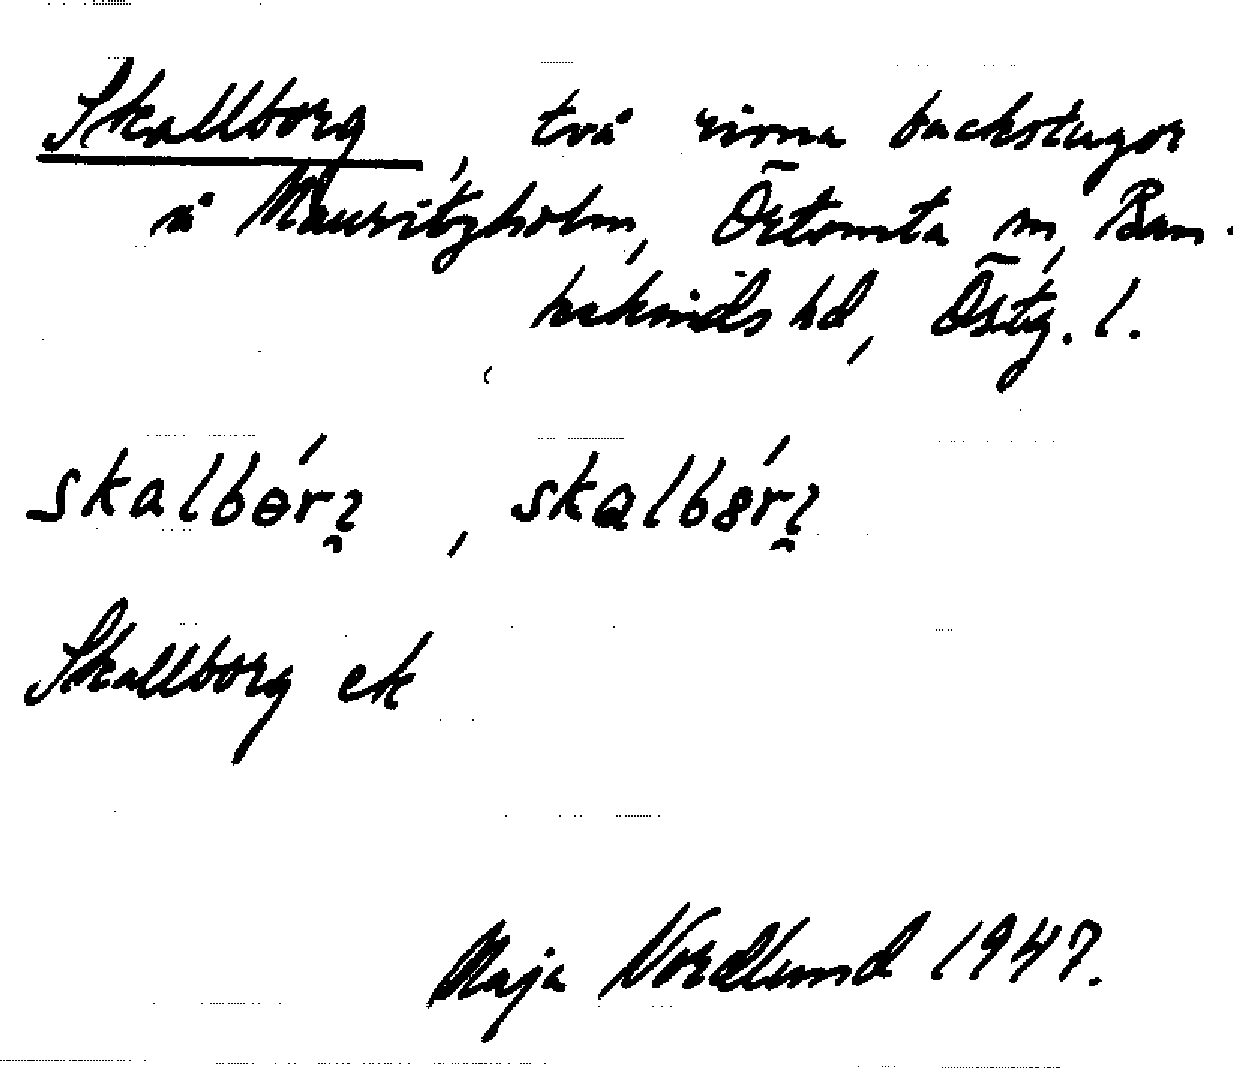 Skallborg, två rivna backstugor
å Mauritzholm, Örtomta sn, Ban-
kekinds hd, Östg. l.
skalbɵrɿ, skalb8rɿ
Skallborg ek
Maja Nordlund 1947.